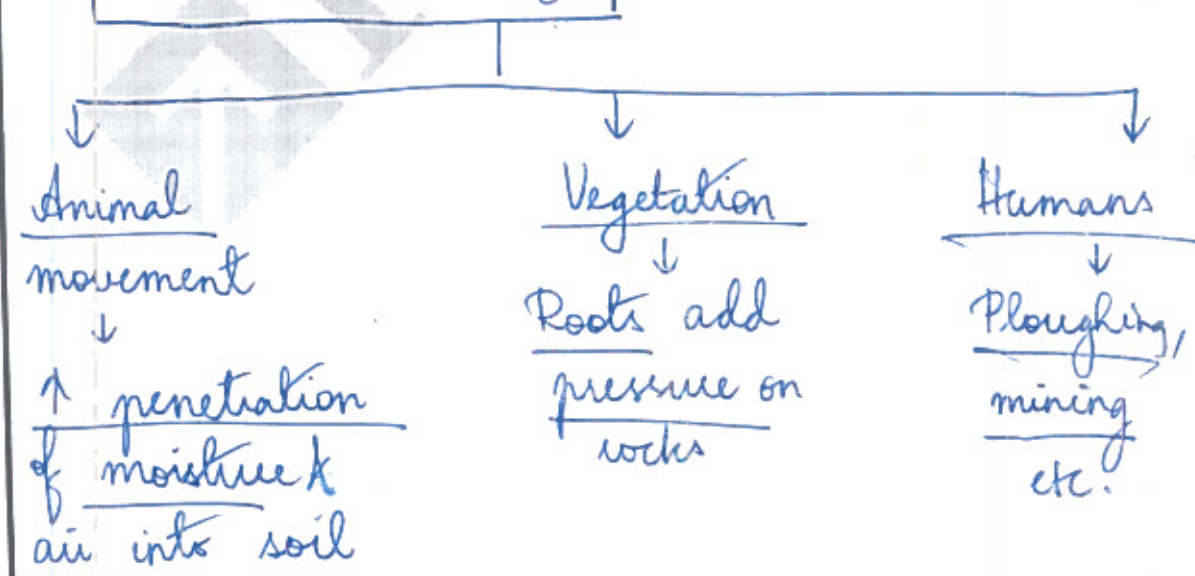 Animal
movement
↓
↑ penetration
of moisture &
air into soil
Vegetation
↓
Roots add
pressure on
rocks
Humans
↓
Ploughing,
mining
etc.